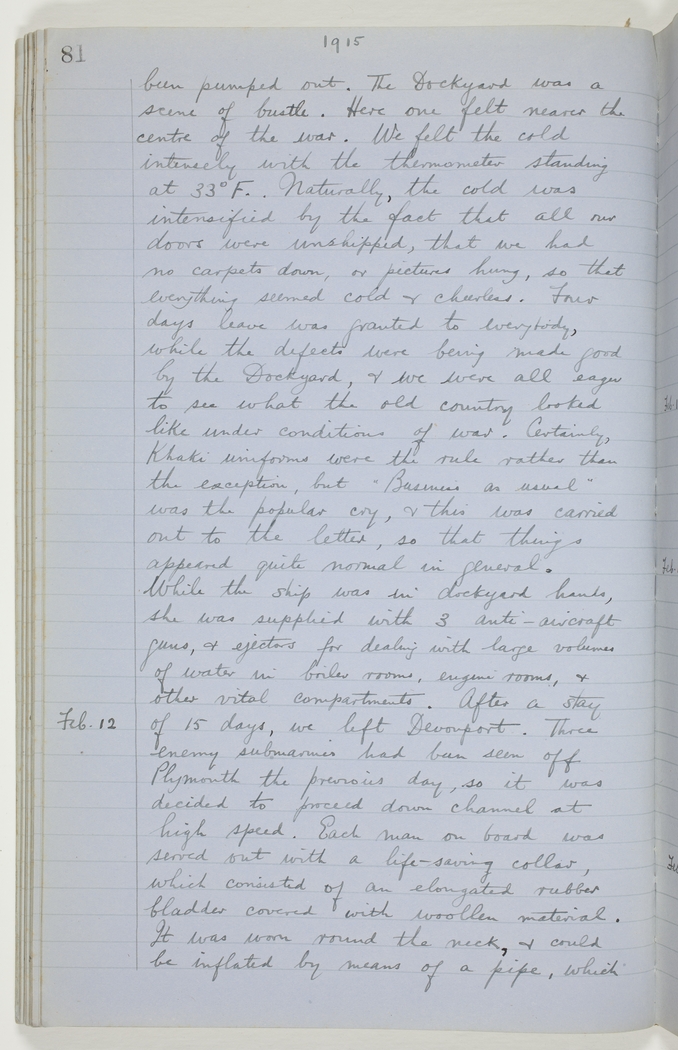 81
1915
been pumped out. The Dockyard was a
scene of bustle. Here one felt nearer the
centre of the war. We felt the cold
intensely with the thermometer standing
at 33°F. Naturally, the cold was
intensified by the fact that all our
doors were unshipped, that we had
no carpets down, or pictures hung, so that
everything seemed cold & cheerless. Four
days leave was granted to everybody,
while the defects were being made good
by the Dockyard, & we were all eager
to see what the old country looked
like under conditions of war. Certainly,
Khaki uniforms were the rule rather than
the exception, but "Business as usual"
was the popular cry, & this was carried
out to the letter, so that things
appeared quite normal in general.
While the ship was in dockyard hands,
she was supplied with 3 anti-aircraft
guns, & ejectors for dealing with large volumes
of water in boiler rooms, engine rooms, &
other vital compartments. After a stay
Feb. 12 of 15 days, we left Devonport. Three
enemy submarines had been seen off
Plymouth the previous day, so it was
decided to proceed down channel at
high speed. Each man on board was
served out with a life-saving collar,
which consisted of an elongated rubber
bladder covered with woollen material.
It was worn round the neck, & could
be inflated by means of a pipe, which